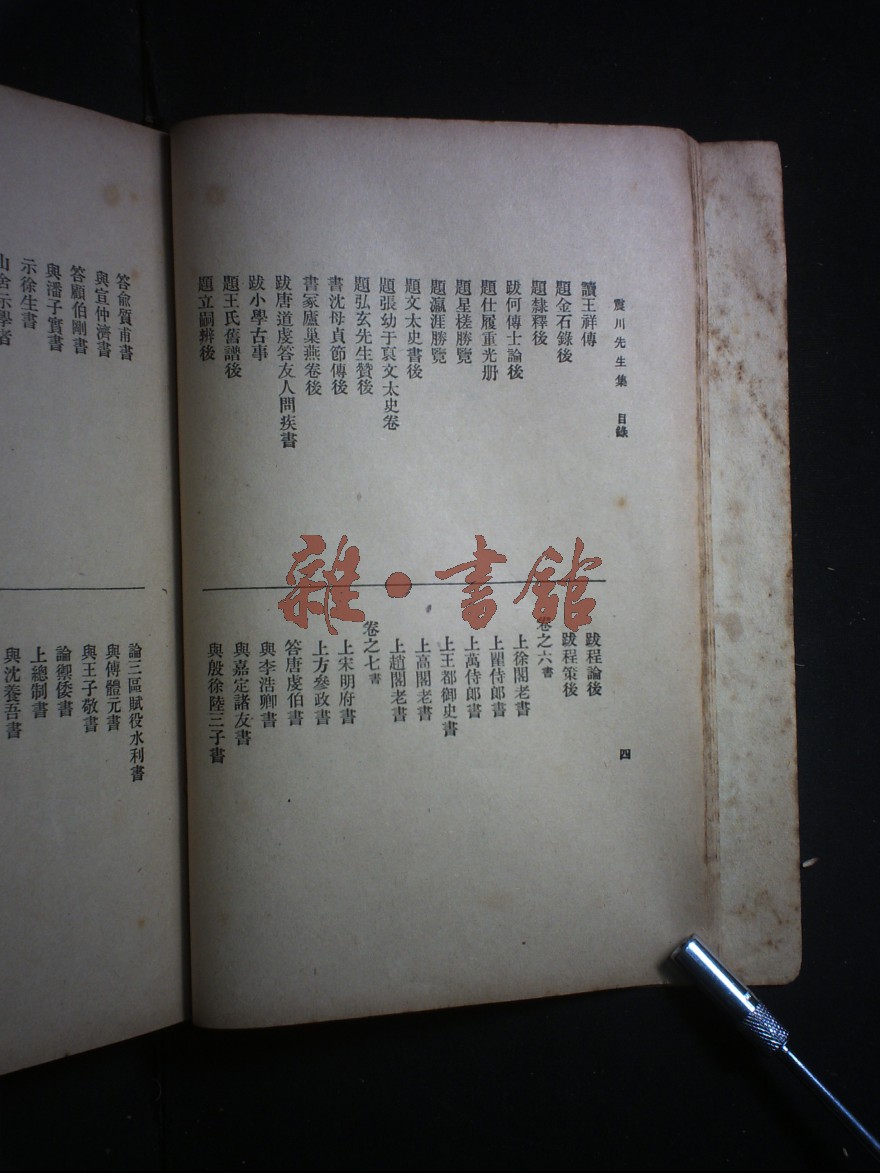 震川先生集 目錄
四
讀王祥傳
題金石錄後
題隸釋後
跋何博士論後
題仕履重光册
題星槎勝覽
題瀛涯勝覽
題文太史書後
題張幼于裒文太史卷
題弘玄先生赞後
書沈母貞節傳後
書冢廬巢燕卷後
跋唐道虔答友人問疾書
跋小學古事
題王氏舊譜後
題立嗣辨後
跋程論後
跋程策後
卷之六書
上徐閣老書
上瞿侍郎書
上萬侍郎書
上王都御史書
上高閣老書
上趙閣老書
卷之七書
上宋明府書
上方參政書
答唐虔伯書
與李浩卿書
與嘉定諸友書
與殷徐陸三子書
答俞質甫書
與宣仲濟書
答顧伯剛書
與潘子實書
示徐生書
山舍示學者
論三區賦役水利書
與傅體元書
與王子敬書
論禦倭書
上總制書
與沈養吾書
雜·書館